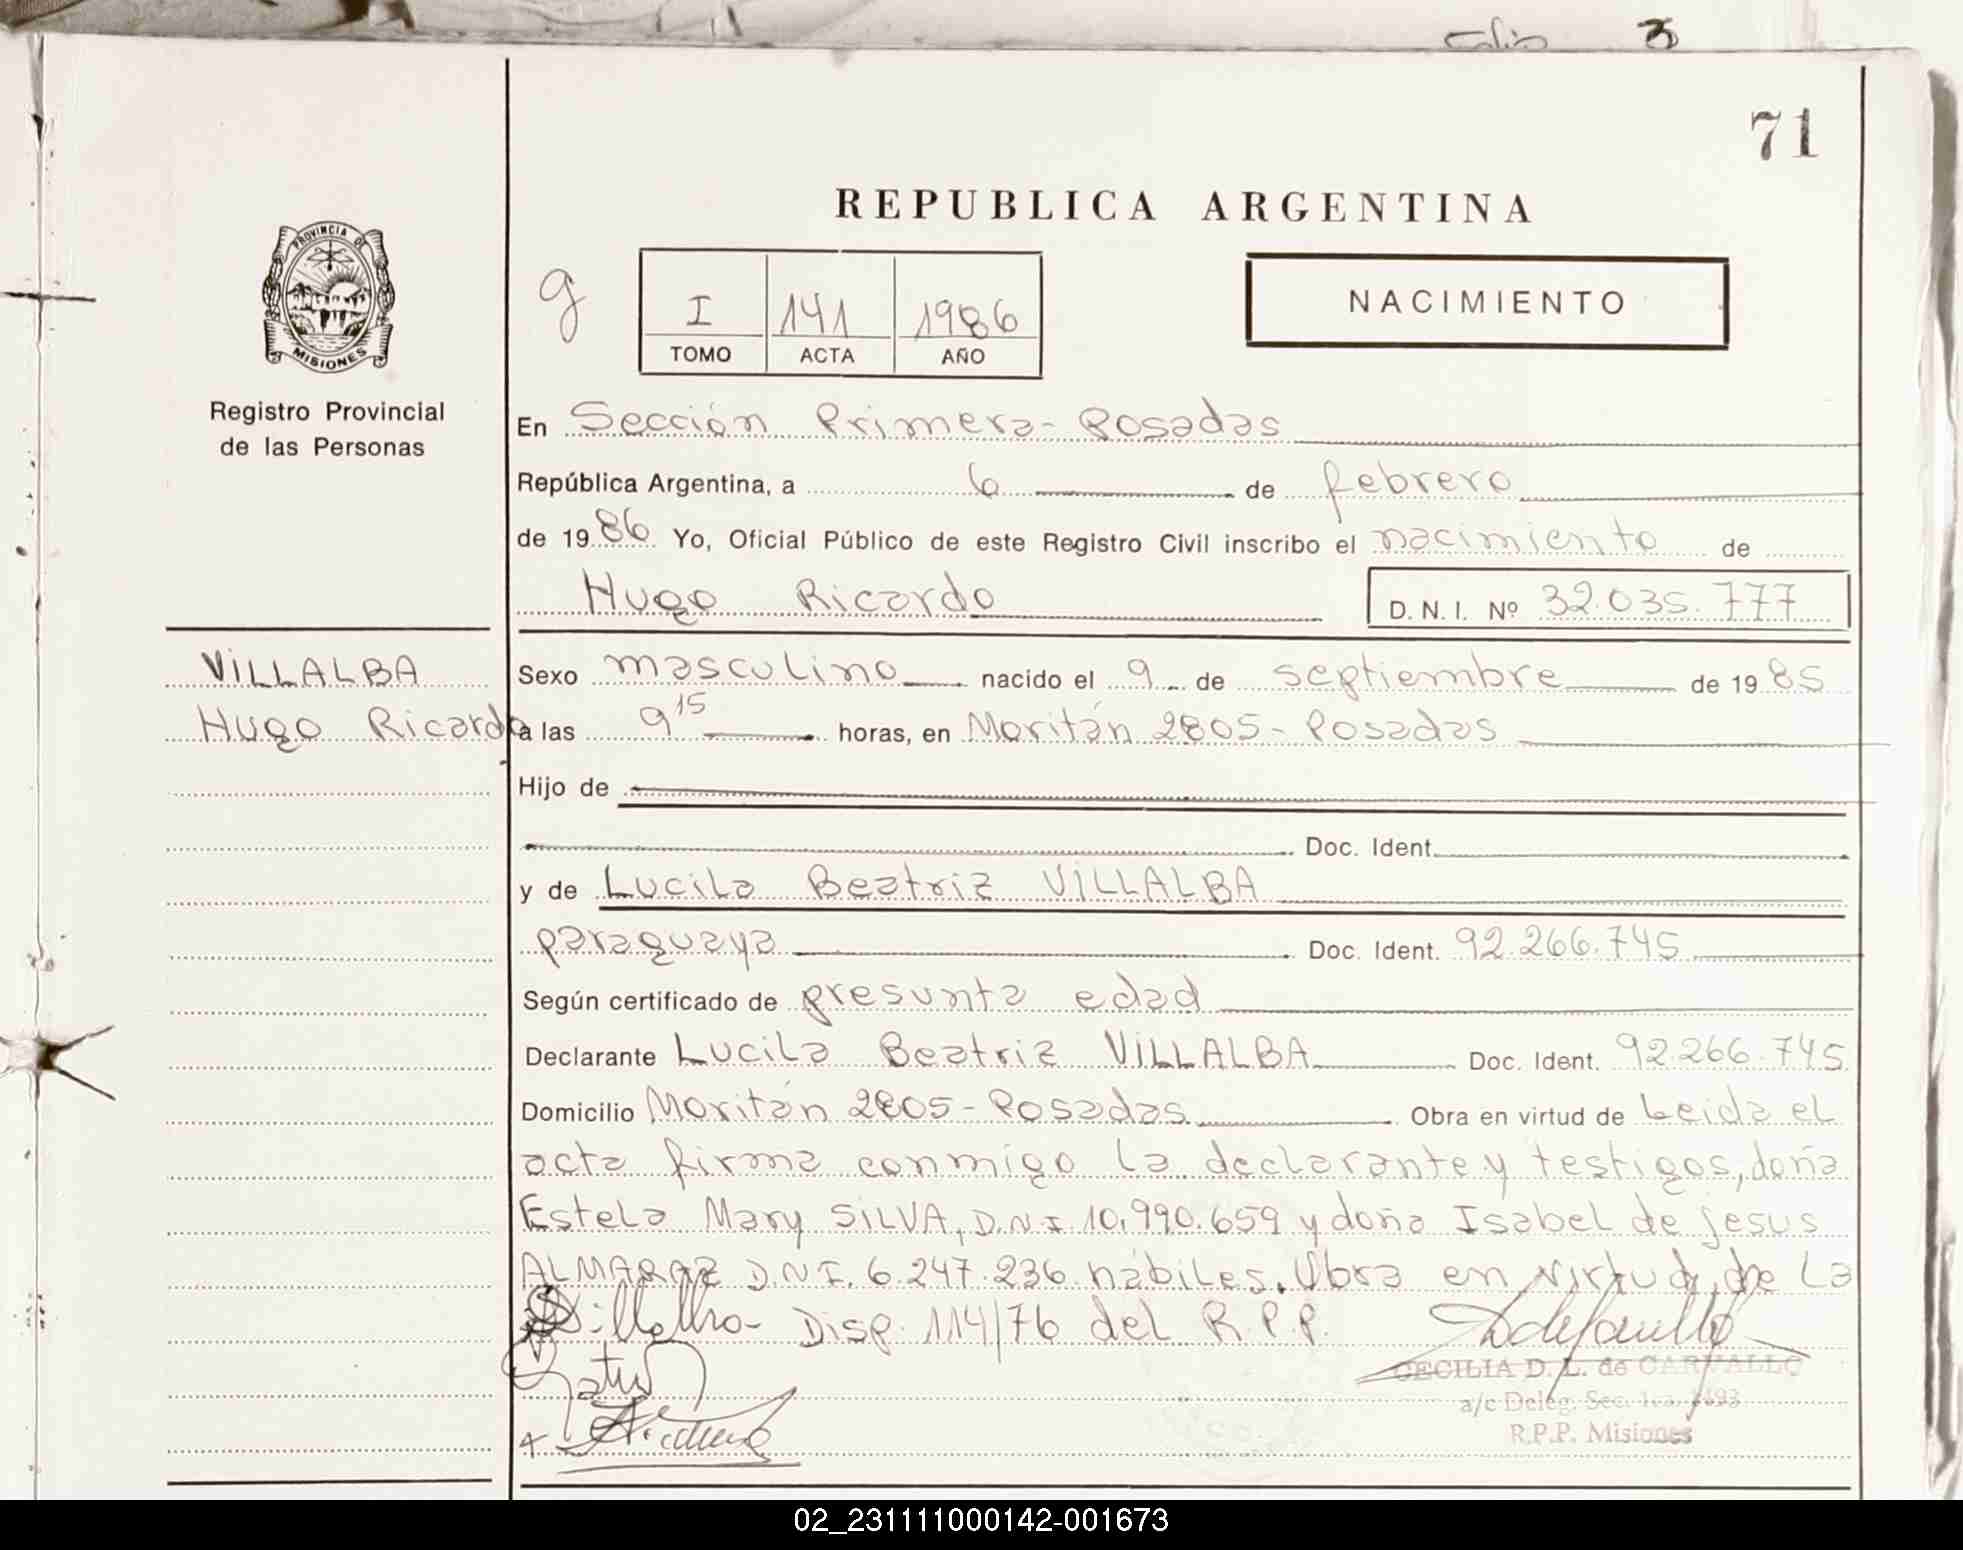 Folio 3
71
REPUBLICA ARGENTINA
PROVINCIA DE
MISIONES
Registro Provincial
de las Personas
g
I 141 1986
TOMO ACTA AÑO
NACIMIENTO
En Sección Primera - Posadas
República Argentina, a 6 de febrero
de 1986 Yo, Oficial Público de este Registro Civil inscribo el nacimiento de
Hugo Ricardo D.N.I. Nº 32.035.777
VILLALBA
Hugo Ricardo
Sexo masculino nacido el 9 de septiembre de 1985
a las 9 15 horas, en Moritán 2805 - Posadas
Hijo de
Doc. Ident.
y de Lucila Beatriz VILLALBA
paraguaya Doc. Ident. 92.266.745
Según certificado de presunta edad
Declarante Lucila Beatriz VILLALBA Doc. Ident. 92.266.745
Domicilio Moritán 2805 - Posadas Obra en virtud de Leida el
acta firma conmigo la declarante y testigos, doña
Estela Mary SILVA, D.N.I. 10.990.659 y doña Isabel de Jesus
ALMARAZ D.N.I. 6.247.236 hábiles. Obra en virtud de la
Disp. 114/76 del R.P.P.
CECILIA D. L. de CARVALLO
a/c Deleg. Sec. 1ra. 1493
R.P.P. Misiones
02_231111000142-001673